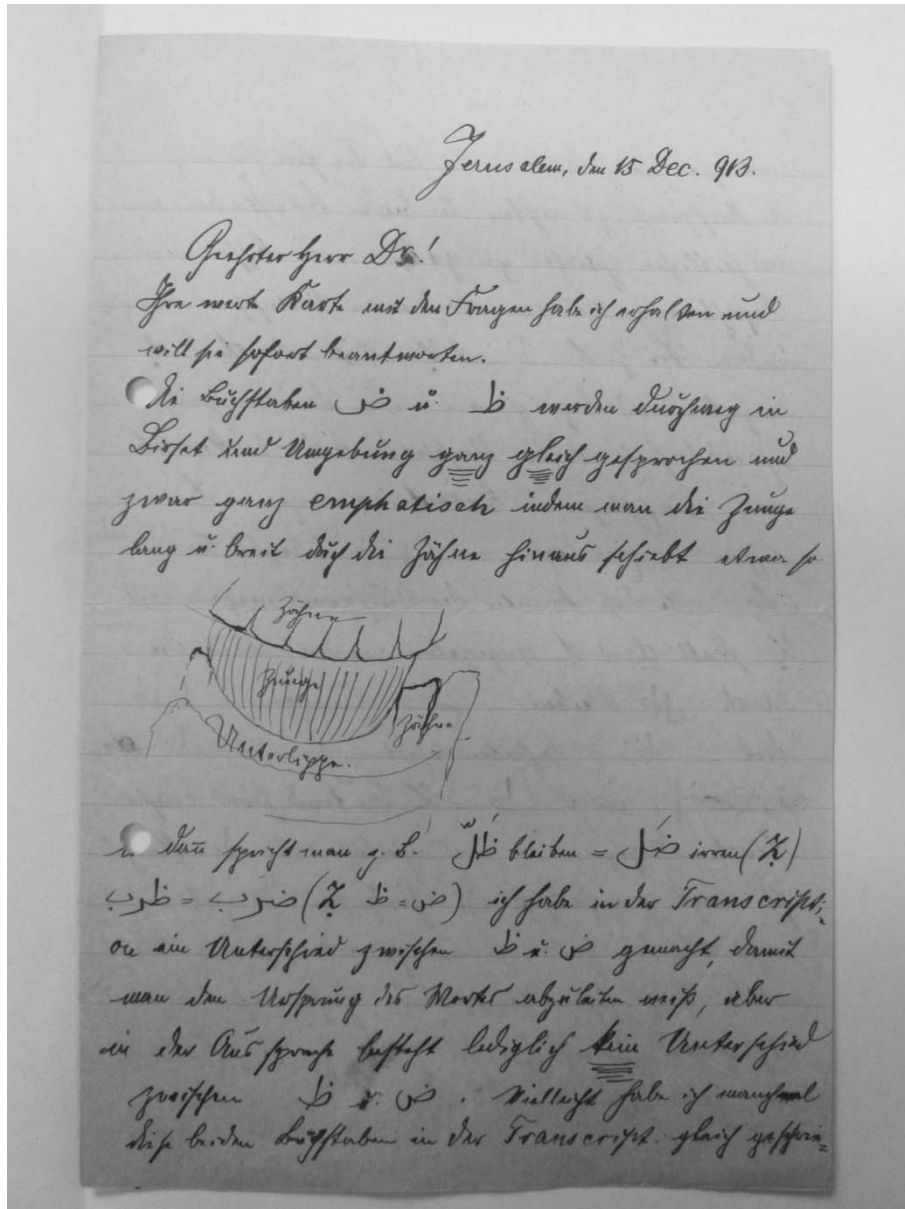 Jerusalem, den 15 Dec. 913.
Geehrter Herr Dr!
Ihre werte Karte mit den Fragen habe ich erhalten und
will sie sofort beantworten.
die Buchstaben ض u. ظ werden durchweg in
Birzet und Umgebung ganz gleich gesprochen und
zwar ganz emphatisch indem man die Zunge
lang u. breit durch die Zähne hinaus schiebt etwa so
Zähne
Zunge
Zähne
Unterlippe.
u dann spricht man z. B. ظلّ bleiben = ضل irren (Ẓ)
ظرب = ضرب (Ẓ ض = ظ) ich habe in der Transcripti=
on ein Unterschied zwischen ظ u. ض gemacht, damit
man den Ursprung des Wortes abzuleiten weiß, aber
in der Aussprache besteht lediglich kein Unterschied
zwischen ظ u. ض . Vielleicht habe ich manchmal
diese beiden Buchstaben in der Transcript. gleich geschrie=